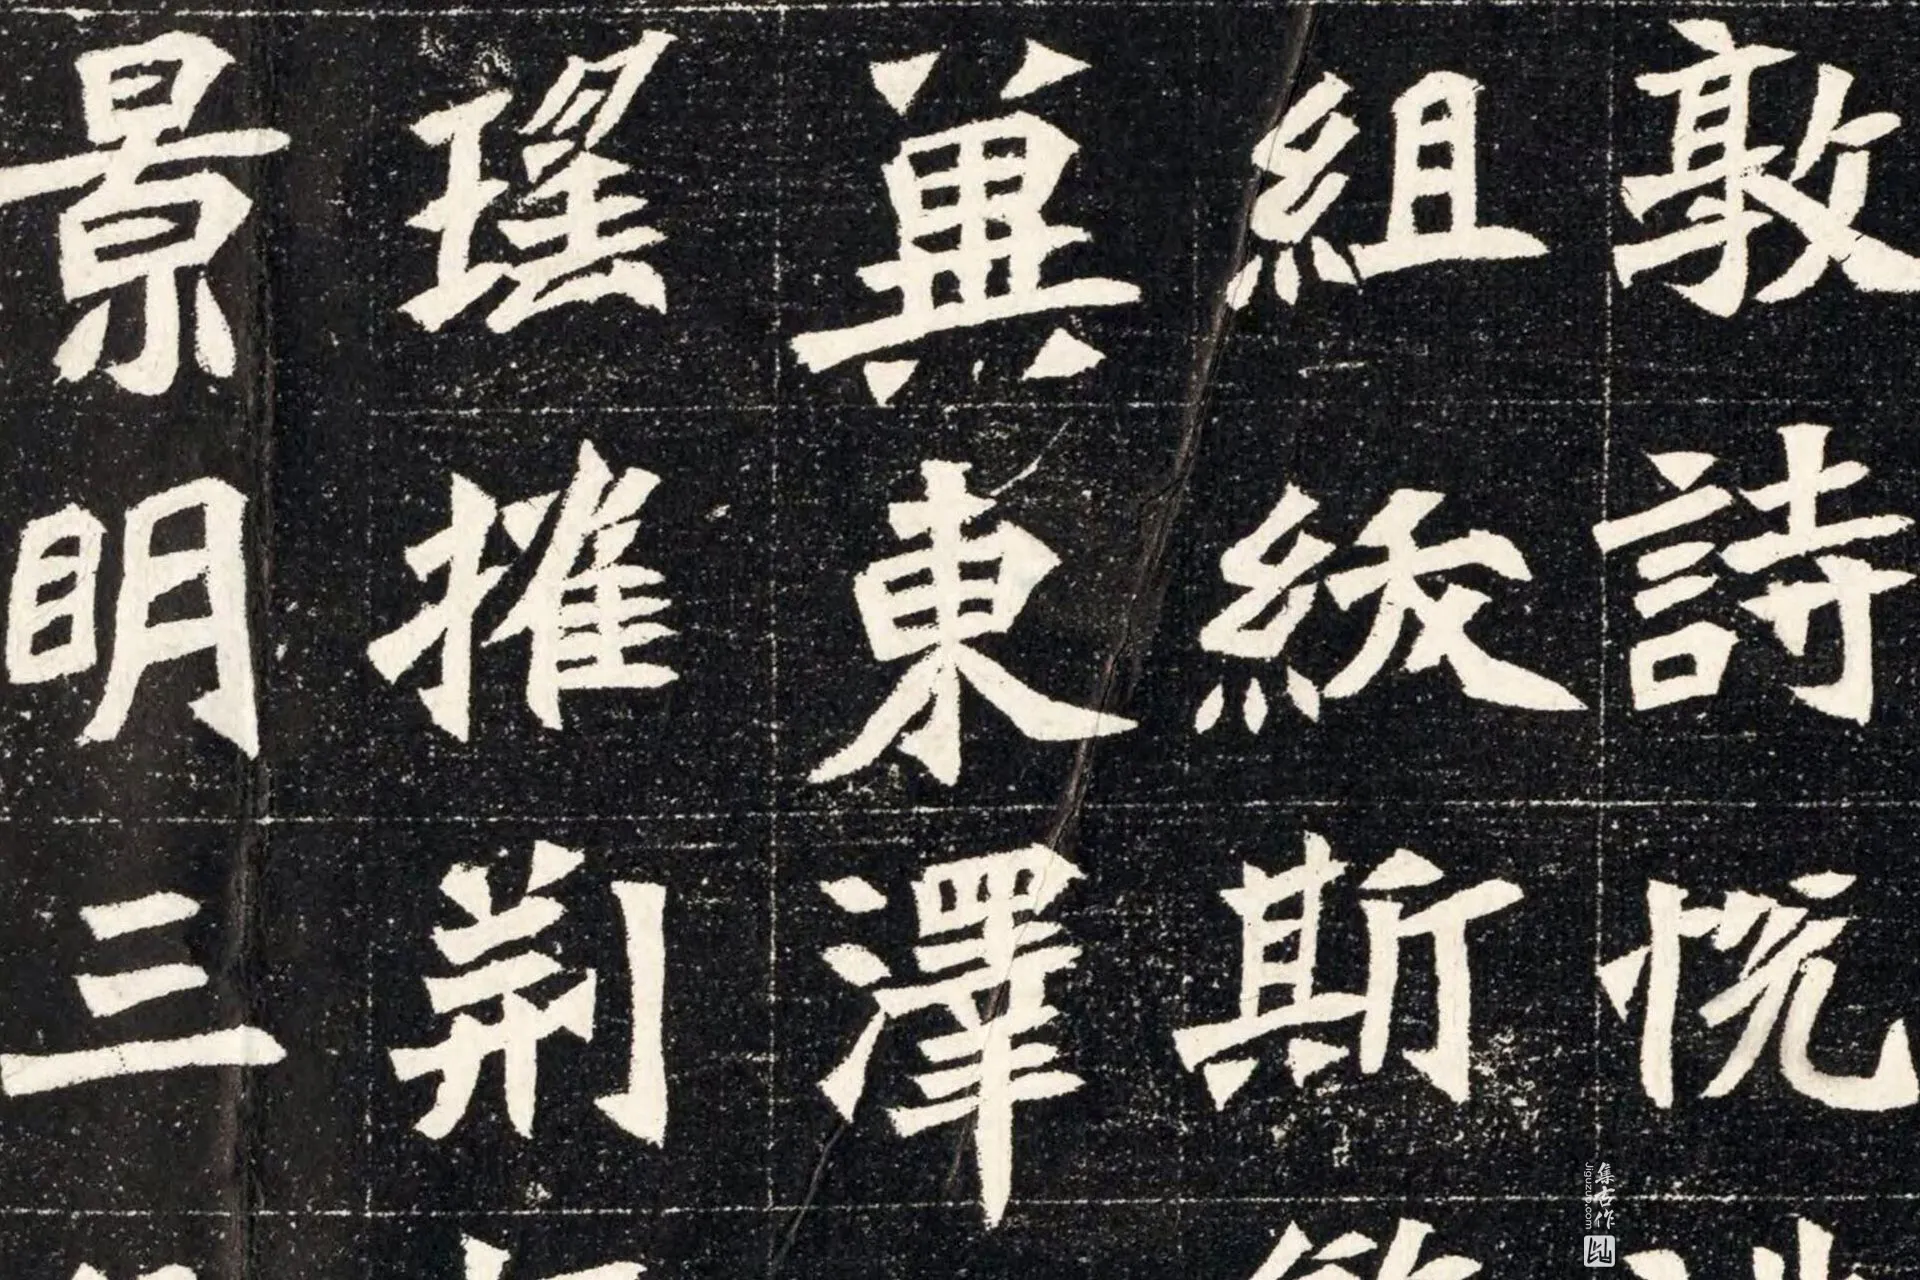 敦詩悅
組綬斯
冀東澤
瑤摧荊
景明三
集古作
Jiguzuo.com